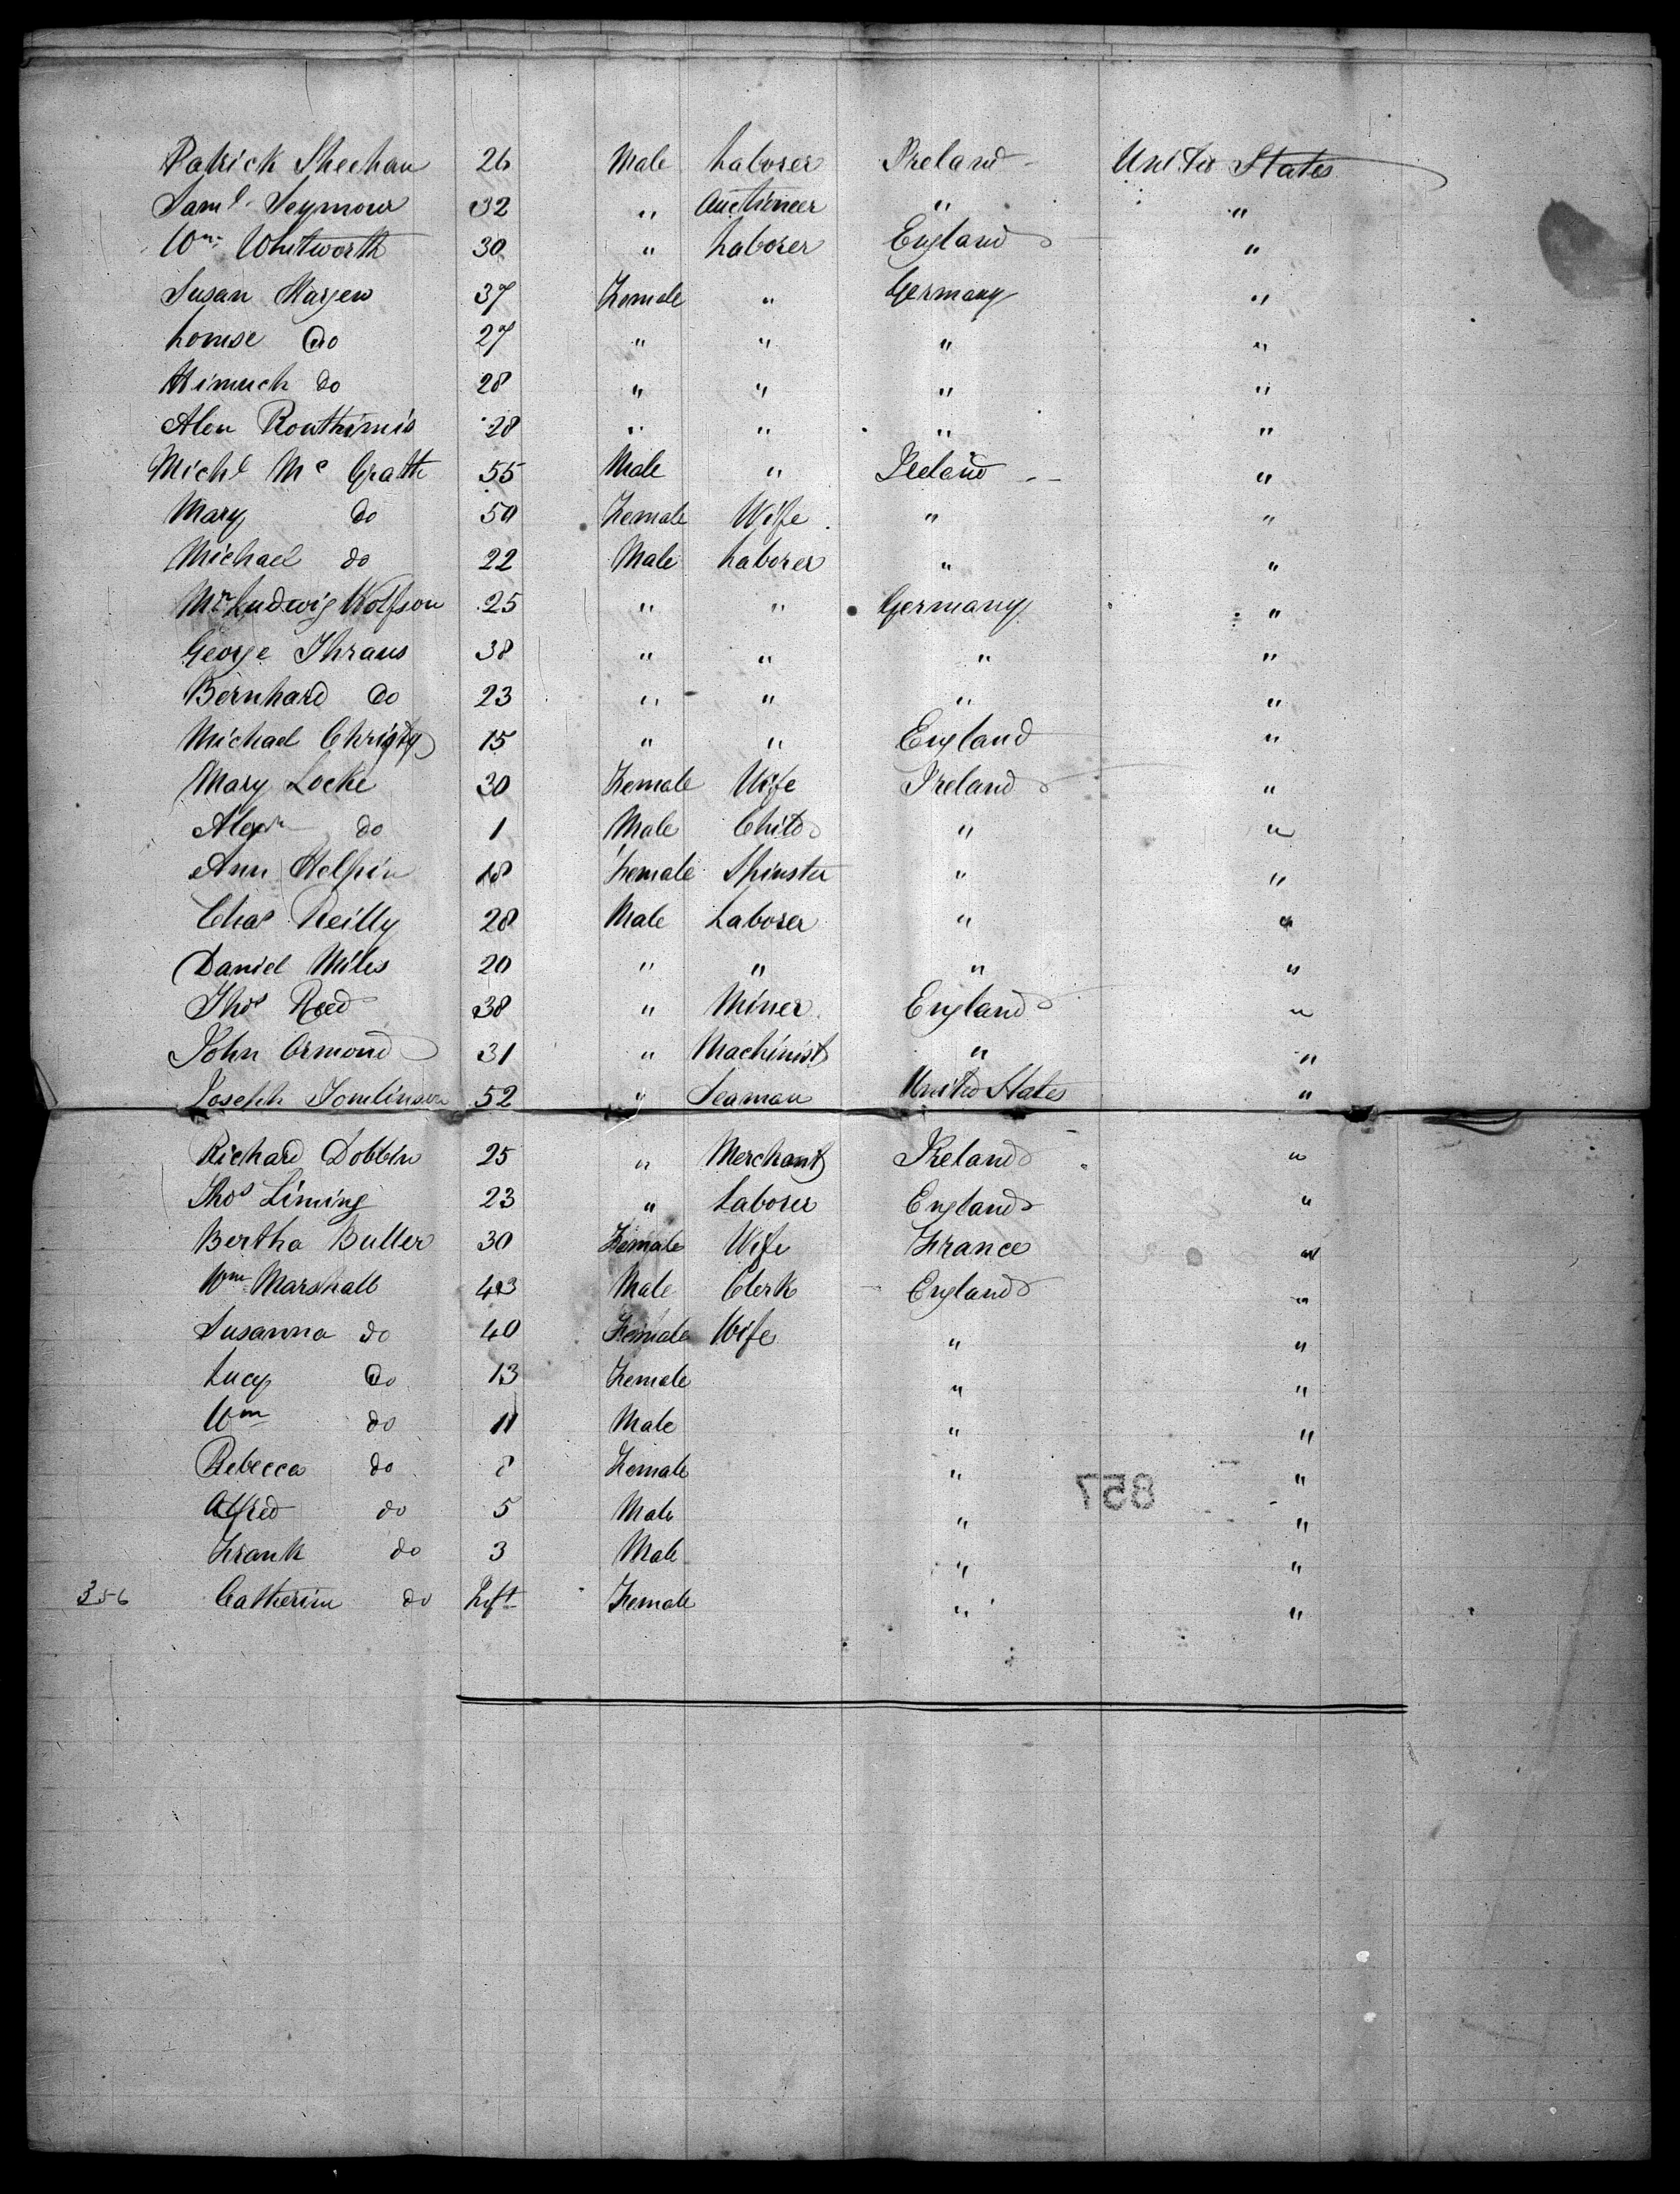 Patrick Sheehan 26 Male Laborer Ireland United States
Saml Seymour 32 " Auctioneer " "
Wm Whitworth 30 " Laborer England "
Susan Hagen 37 Female " Germany "
Louise Do 27 " " " "
Hinrich do 28 " " " "
28 " " " "
Michl Mc Grath 55 Male " Ireland "
Mary do 50 Female Wife " "
Michael do 22 Male Laborer " "
Mr Ludwig Wolfson 25 " " Germany "
George Thraus 38 " " " "
Bernhard Do 23 " " " "
Michael Christy 15 " " England "
Mary Locke 30 Female Wife Ireland "
Alexr do 1 Male Child " "
Ann Helpin 18 Female Spinster " "
Chas Reilly 28 Male Laborer " "
Daniel Miles 20 " " " "
Thos Reed 38 " Miner England "
John Ormond 31 " Machinist " "
Joseph Tomlinson 52 " Seaman United States "
Richard Dobbin 25 " Merchant Ireland "
Thos Liming 23 " Laborer England "
Bertha Buller 30 Female Wife France "
Wm Marshall 43 Male Clerk England "
Susanna do 40 Female Wife " "
Lucy Do 13 Female " "
Wm do 11 Male " "
Rebecca do 8 Female " "
Alfred do 5 Male " "
857
Frank do 3 Male " "
356 Catherine do Inft Female " "